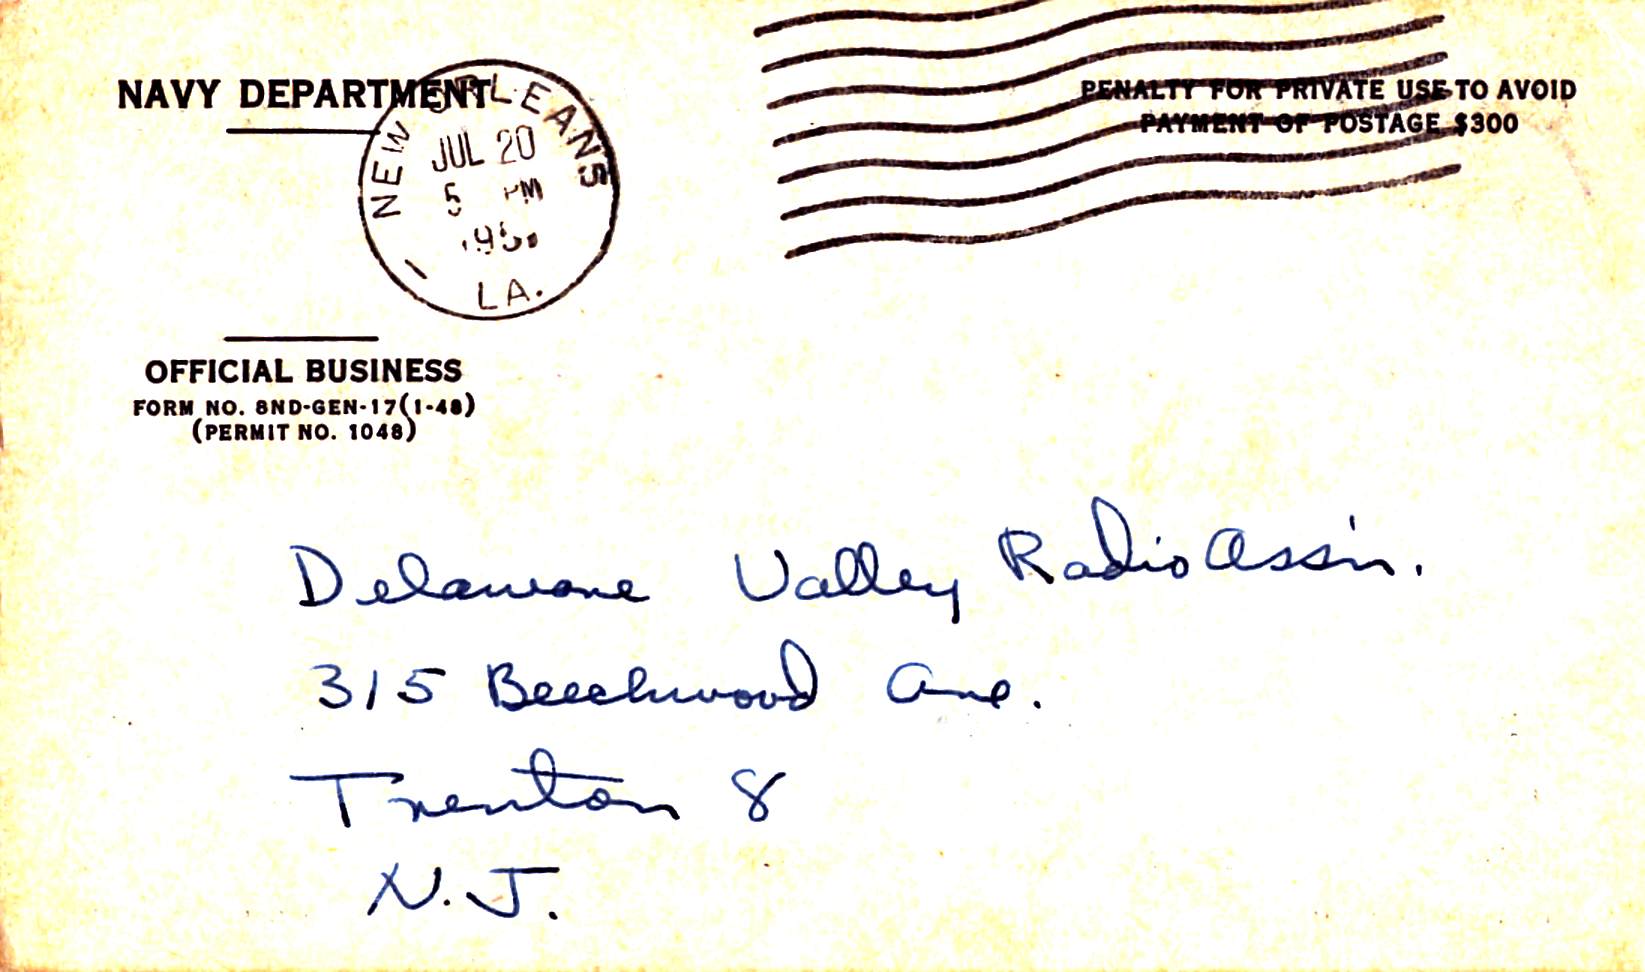 NAVY DEPARTMENT
NEW ORLEANS
JUL 20
5 PM
LA.
PENALTY FOR PRIVATE USE TO AVOID
PAYMENT OF POSTAGE $300
OFFICIAL BUSINESS
FORM NO. 8ND-GEN-17(1-48)
(PERMIT NO. 1048)
Delaware Valley Radio Ass'n.
315 Beechwood Ave.
Trenton 8
N.J.